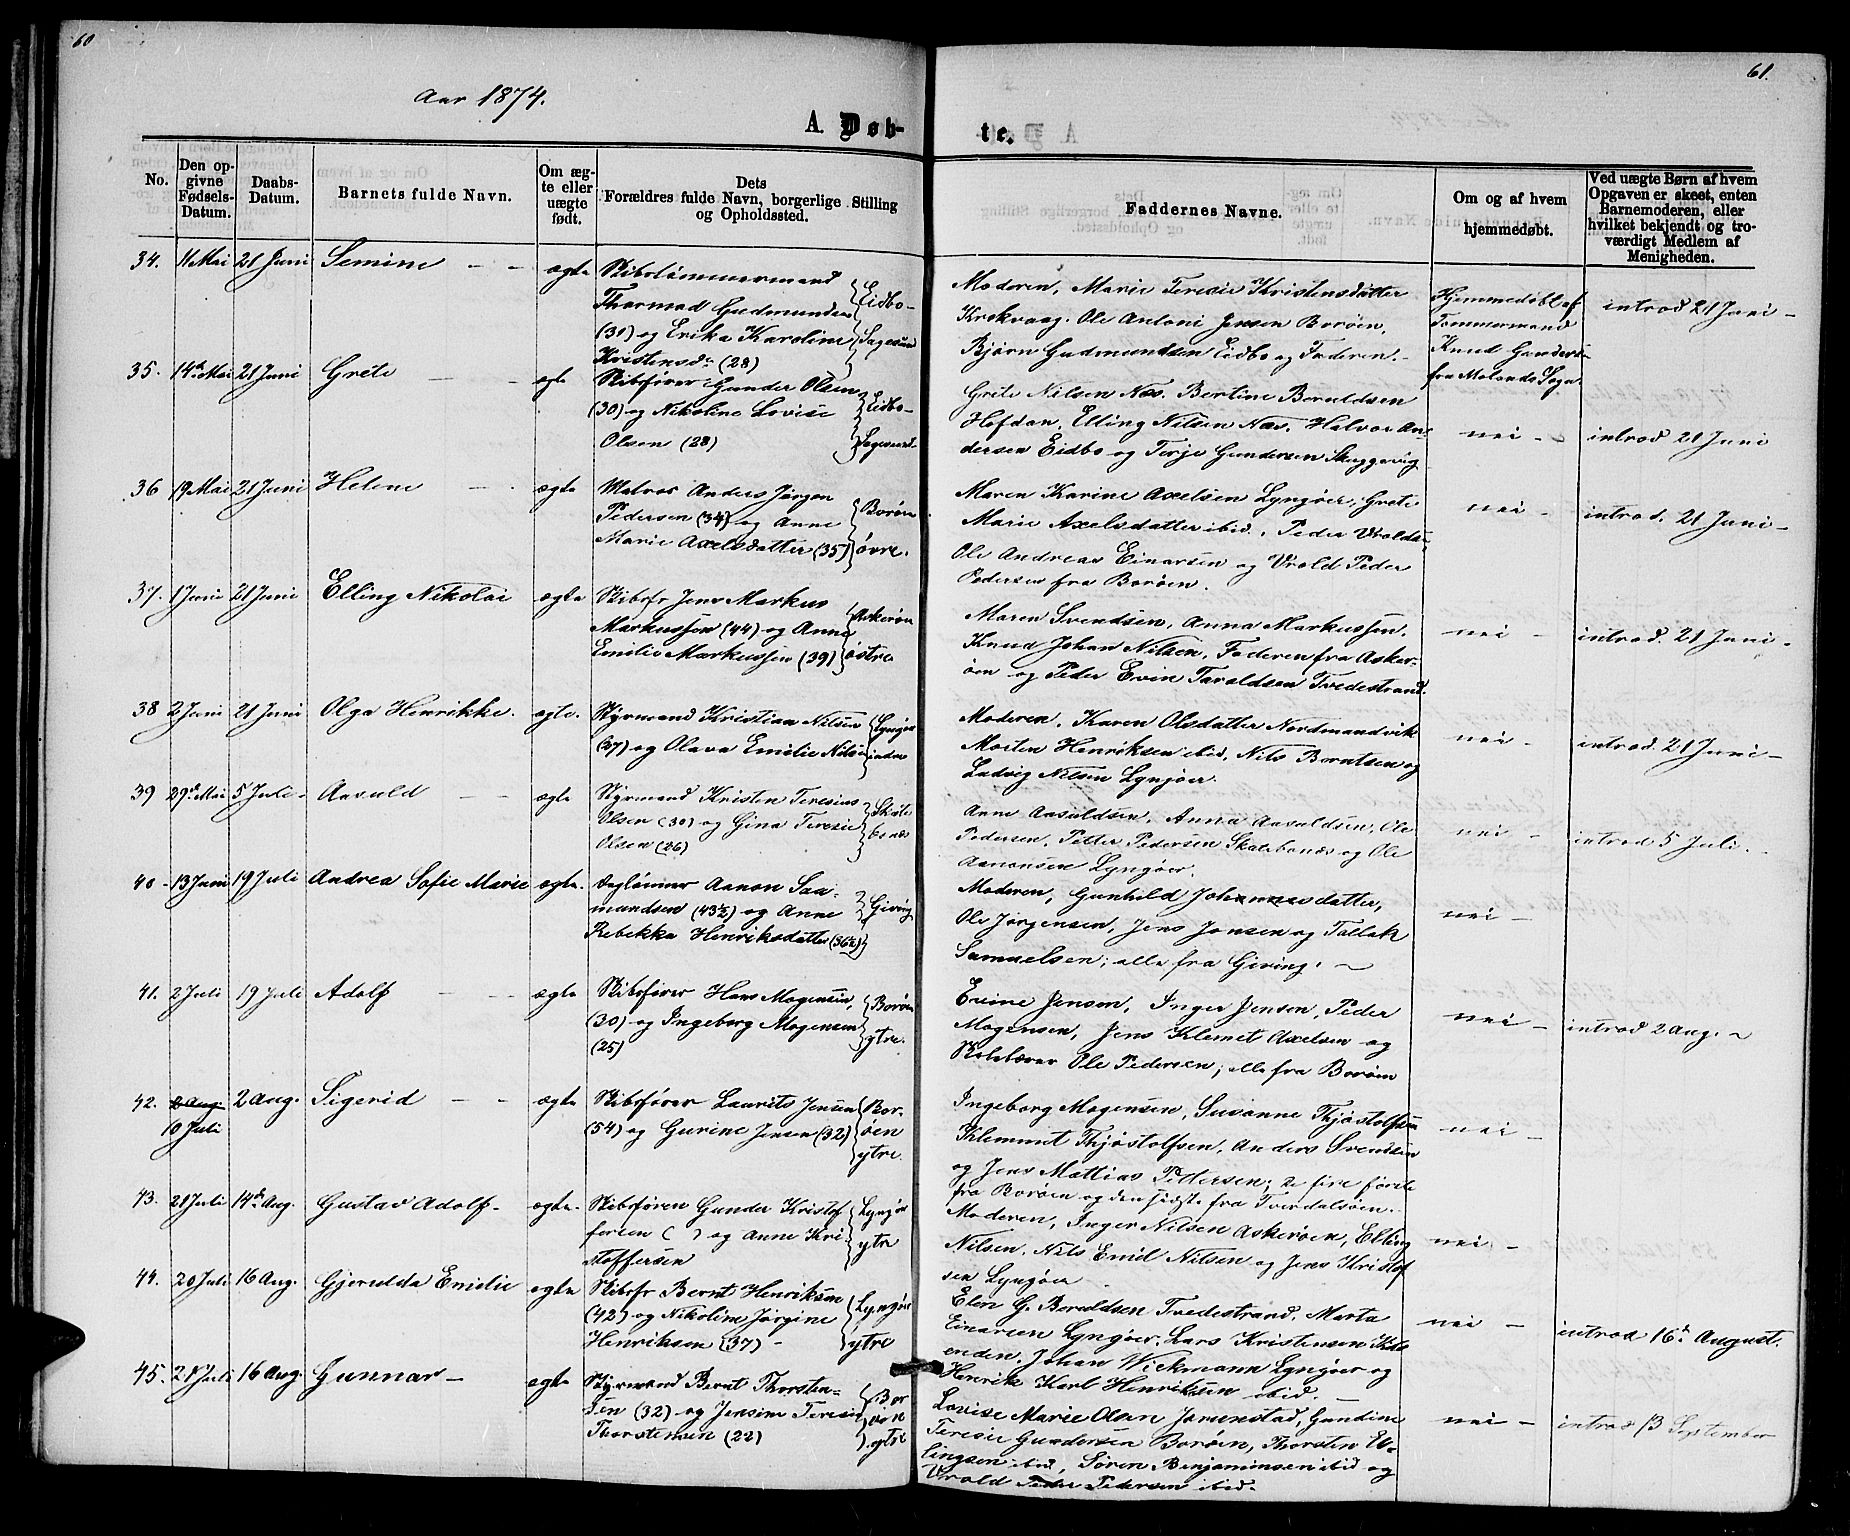 60
Aar 1874.
A. Døb-
No.
Den op-
givne
Fødsels-
Datum.
Daabs-
Datum.
Barnets fulde Navn.
Om æg-
te eller
uægte
født.
Dets
Forældres fulde Navn, borgerlige Stilling
og Opholdssted.
61.
te.
Faddernes Navne.
Om og af hvem
hjemmedøbt.
Ved uægte Børn af hvem
Opgaven er skeet, enten
Barnemoderen, eller
hvilket bekjendt og tro-
værdigt Medlem af
Menigheden.
34. 11 Mai 21 Juni Semine - - ægte
Skibstømmermand
Thormod Gudmundsen
(31) og Erika Karoline
Kristensdr (28)
Eidbo-
Sagesund
Moderen, Marie Teresie Kristensdatter
Krokvaag. Ole Antoni Jensen Borøen,
Bjørn Gudmundsen Eidbo og Faderen.
Hjemmedøbt af
Tømmermand
Knud Gunders.
fra Molands Sogn
introd 21 Juni -
35. 14de Mai 21 Juni Grete - - ægte
Skibsfører Gunder Olsen
(30) og Nikoline Lovise
Olsen (28)
Eidbo-
Sagesund
Grete Nilsen Næs. Bertine Beruldsen
Høfdan, Elling Nilsen Næs. Halvor An-
dersen Eidbo og Terje Gundersen Skuggevig
nei -
introd 21 Juni
36 19 Mai 21 Juni Helene - - ægte
Matros Anders Jørgen
Pedersen (34) og Anne
Marie Axelsdatter (35)
Borøen
øvre.
Maren Karine Axelsen Lyngøer, Grete
Marie Axelsdatter ibid., Peder Vrolds.,
Ole Andreas Einarsen og Vrold Peder
Pedersen fra Borøen.
nei -
introd. 21 Juni -
37. 1 Juni 21 Juni Elling Nikolai ægte
Skibsfr Jens Markus
Markussen (44) og Anne
Emilie Markussen (39)
Askerøen
østre
Maren Svendsen, Anna Markussen,
Knud Johan Nilsen, Faderen fra Asker-
øen og Peder Evin Taraldsen Tvedestrand.
nei -
introd. 21 Juni -
38 2 Juni 21 Juni Olga Henrikke. ægte.
Styrmand Kristian Nilsen
(37) og Olava Emilie Nilsen
Lyngøer
indre
Moderen, Karen Olsdatter Nordmandvik
Morten Henriksen ibid, Nils Berntsen og
Ludvig Nilsen Lyngøer.
nei -
introd. 21 Juni -
39 29de Mai 5 Juli - Aasuld - - ægte
Styrmand Kristen Teresius
Olsen (30) og Gina Teresie
Olsen (26)
Skate
bonæs
Anne Aasuldsen, Anna Aasuldsen, Ole
Pedersen, Petter Pedersen Skatebonæs og Ole
Aanonsen Lyngøer.
nei -
introd 5 Juli. -
40 - 13 Juni 19 Juli Andrea Sofie Marie ægte.
Daglønner Aanon Saa-
mundsen (43½) og Anne
Rebekka Henriksdatter (36½)
Giving
Moderen, Gunhild Johannesdatter,
Ole Jørgensen, Jens Jensen og Tallak
Samuelsen; alle fra Gjeving. -
nei -
41. 2 Juli 19 Juli Adolf - - ægte
Skibsfører Hans Mogensen,
(30) og Ingeborg Mogensen
(25)
Borøen
ytre.
Evine Jensen, Inger Jensen, Peder
Mogensen, Jens Klemet Axelsen og
Skolelærer Ole Pedersen; alle fra Borøen
nei -
introd 2 Aug. -
42. 2 Aug. 10 Juli 2 Aug. Sigerid - - ægte
Skibsfører Laurits Jensen
(54) og Gurine Jensen (32)
Bor-
øen
ytre.
Ingeborg Mogensen, Susanne Thjøstolfsen
Klemmet Thjøstolfsen, Anders Svendsen
og Jens Mattias Pettersen; de fire første
fra Borøen og den sidste fra Tverdalsøen.
nei -
43. 21 Juli 14de Aug. Gustav Adolf - ægte.
Skibsføren Gunder Kristof
fersen ( ) og Anne Kri
stoffersen
Lyngør
ytre
Moderen, Inger Nilsen Askerøen, Elling
Nilsen, Nils Emil Nilsen og Jens Kristof
sen Lyngøer
nei -
44. 20 Juli 16 Aug. Gjerulda Emilie ægte
Skibsfr Bernt Henriksen
(42) og Nikoline Jørgine
Henriksen (37) -
Lyngør
ytre
Elen G. Beruldsen Tvedestrand, Marta
Einarsen Lyngøer. Lars Kristensen Kil
enden, Johan Wickmann Lyngøer og
Henrik Karl Henriksen ibid.
nei -
introd 16de August.
45. 21 Juli 16 Aug. Gunnar - ægte
Styrmand Bernt Thorsten-
sen (32) og Jensine Teresie
Thorstensen (22)
Bor
øen
ytre
Lovise Marie Olsen Jorunstad, Gundine
Teresie Gundersen Borøen, Thorsten El-
lingsen ibid, Søren Benjaminsen ibid og
Vrold Peder Pedersen ibid.
nei -
introd 13 September